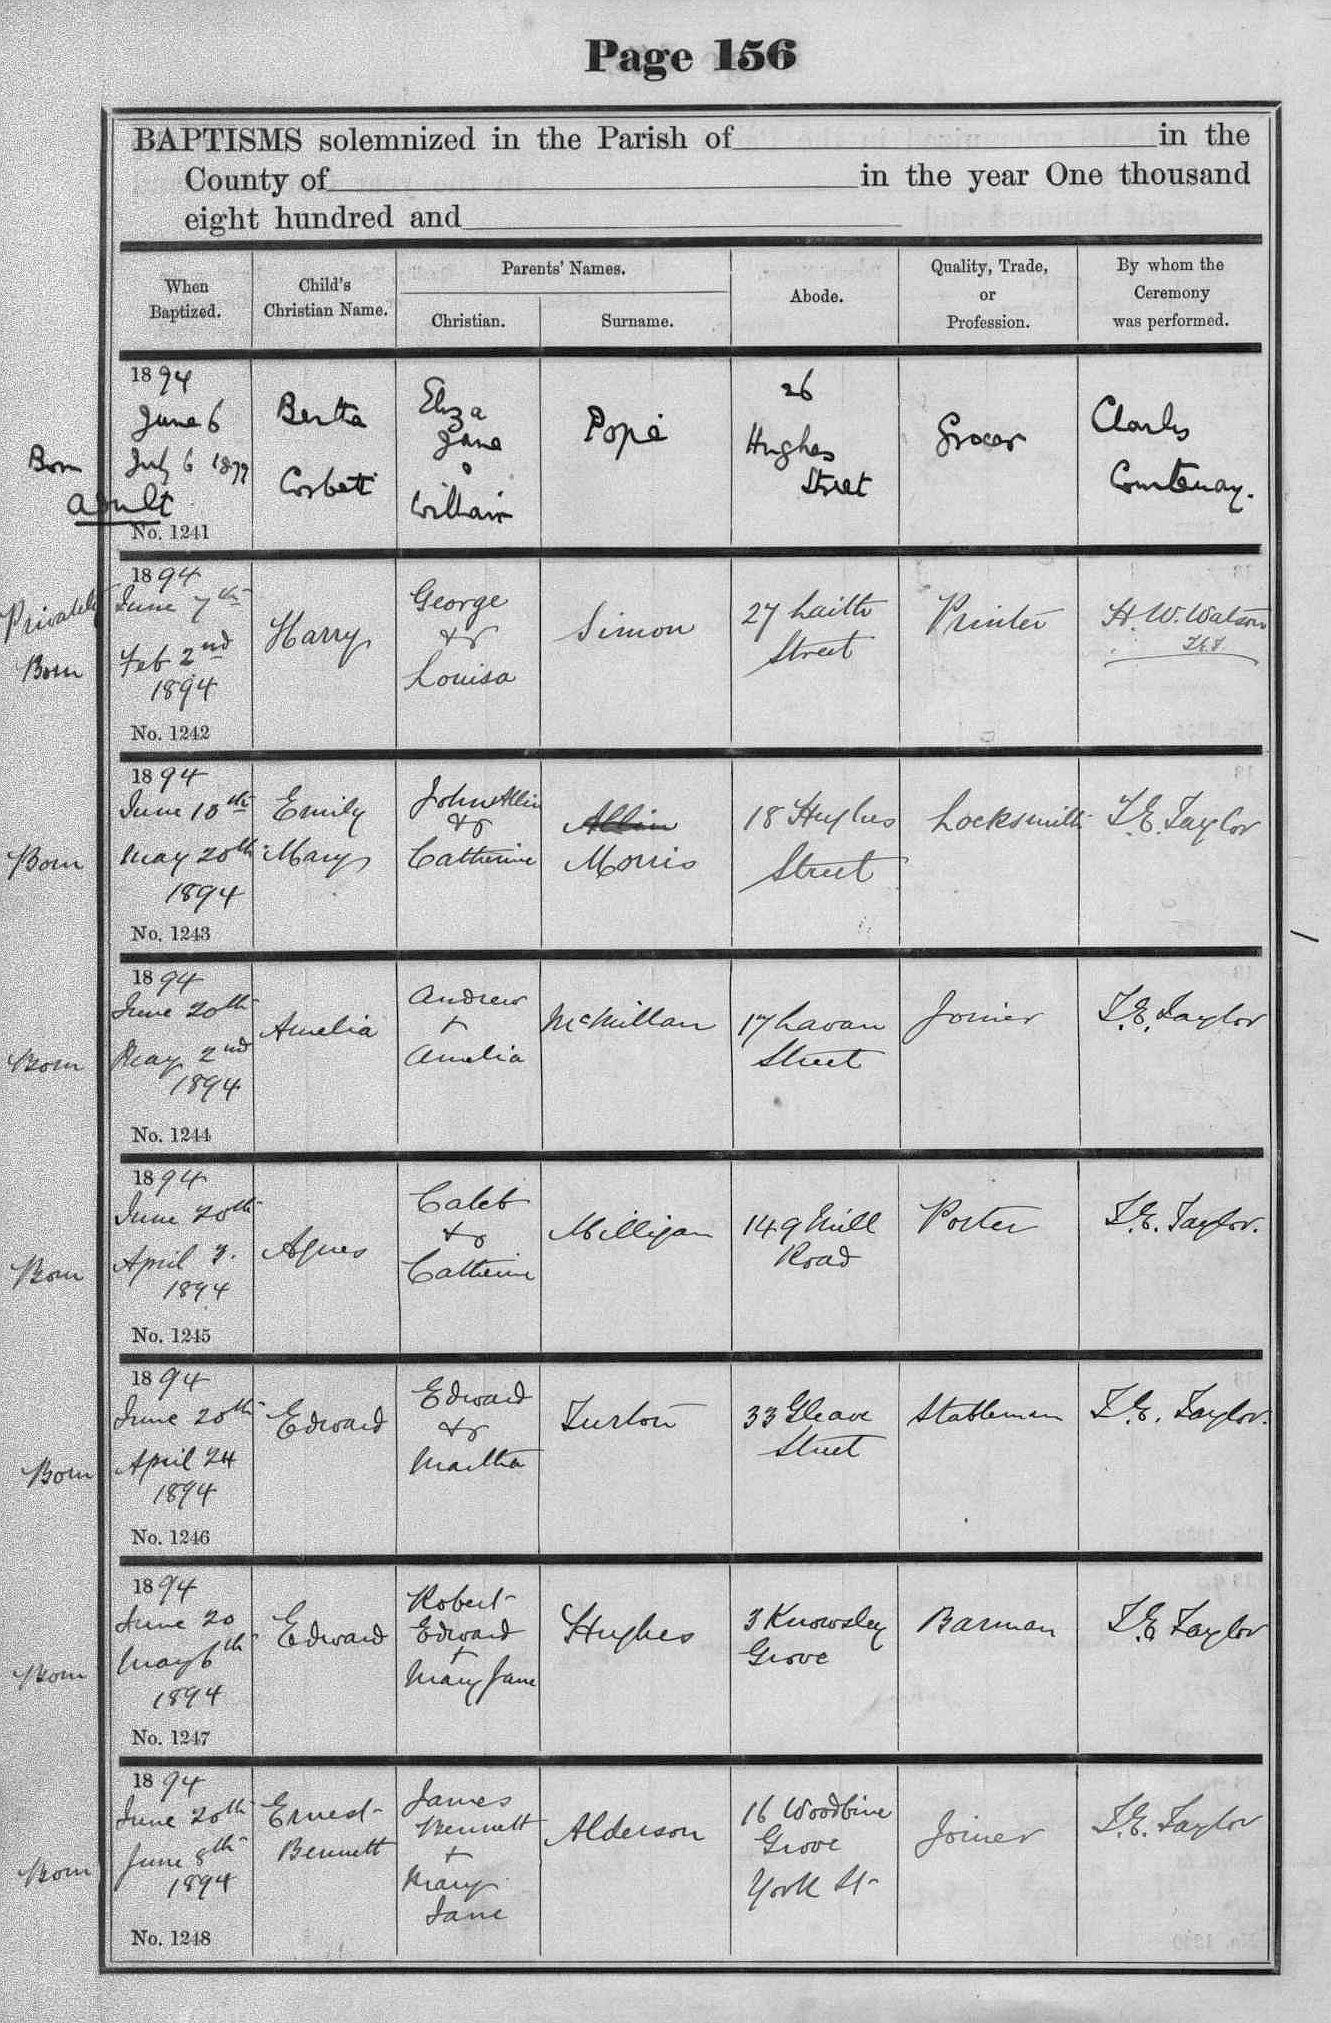 Page 156
BAPTISMS solemnized in the Parish of in the
County of in the year One thousand
eight hundred and
When Baptized.
Child's Christian Name.
Parents' Names.
Christian.
Surname.
Abode.
Quality, Trade, or Profession.
By whom the Ceremony was performed.
1894
June 6
Born July 6 1877
adult
No. 1241
Berta
Corbett
Eliza
Jane
&
William
Pope
26
Hughes
Street
Grocer
Charles
Courtenay.
1894
Privately June 7th
Born Feb 2nd
1894
No. 1242
Harry
George
&
Louisa
Simon
27
Street
Printer
H. W. Watson
1894
June 10th
Born May 20th
1894
No. 1243
Emily
Mary
John Allin
&
Catherine
Allin
Morris
18 Hughes
Street
Locksmith
T. E. Taylor
1894
June 20th
Born May 2nd
1894
No. 1244
Amelia
Andrew
+
Amelia
McMillan
17 Lavan
Street
Joiner
T. E. Taylor
1894
June 20th
Born April 3.
1894
No. 1245
Agnes
Caleb
&
Catherine
Milligan
149 Mill
Road
Porter
T. E. Taylor.
1894
June 20th
Born April 24
1894
No. 1246
Edward
Edward
&
Martha
Turton
33 Gleave
Street
Stableman
T. E. Taylor.
1894
June 20
Born May 6th
1894
No. 1247
Edward
Robert
Edward
+
Mary Jane
Hughes
3 Knowsley
Grove
Barman
T. E. Taylor
1894
June 20th
Born June 8th
1894
No. 1248
Ernest
Bennett
James
Bennett
+
Mary
Jane
Alderson
16 Woodbine
Grove
York St
Joiner
T. E. Taylor